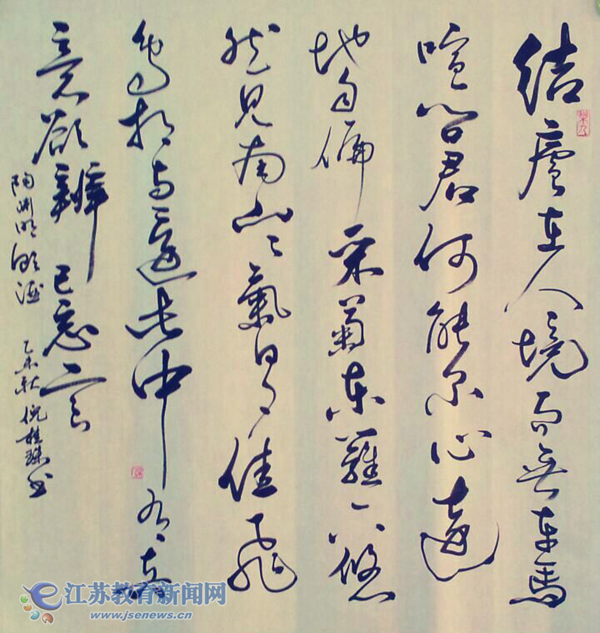 结廬在人境而無车馬
喧問君何能尔心遠
地自偏采菊东籬下悠
然見南山〻氣日夕佳飛
鳥相与還此中有真
意欲辨已忘言
陶渊明飲酒 乙未秋 倪桂珠书
江苏教育新闻网
www.jsenews.cn